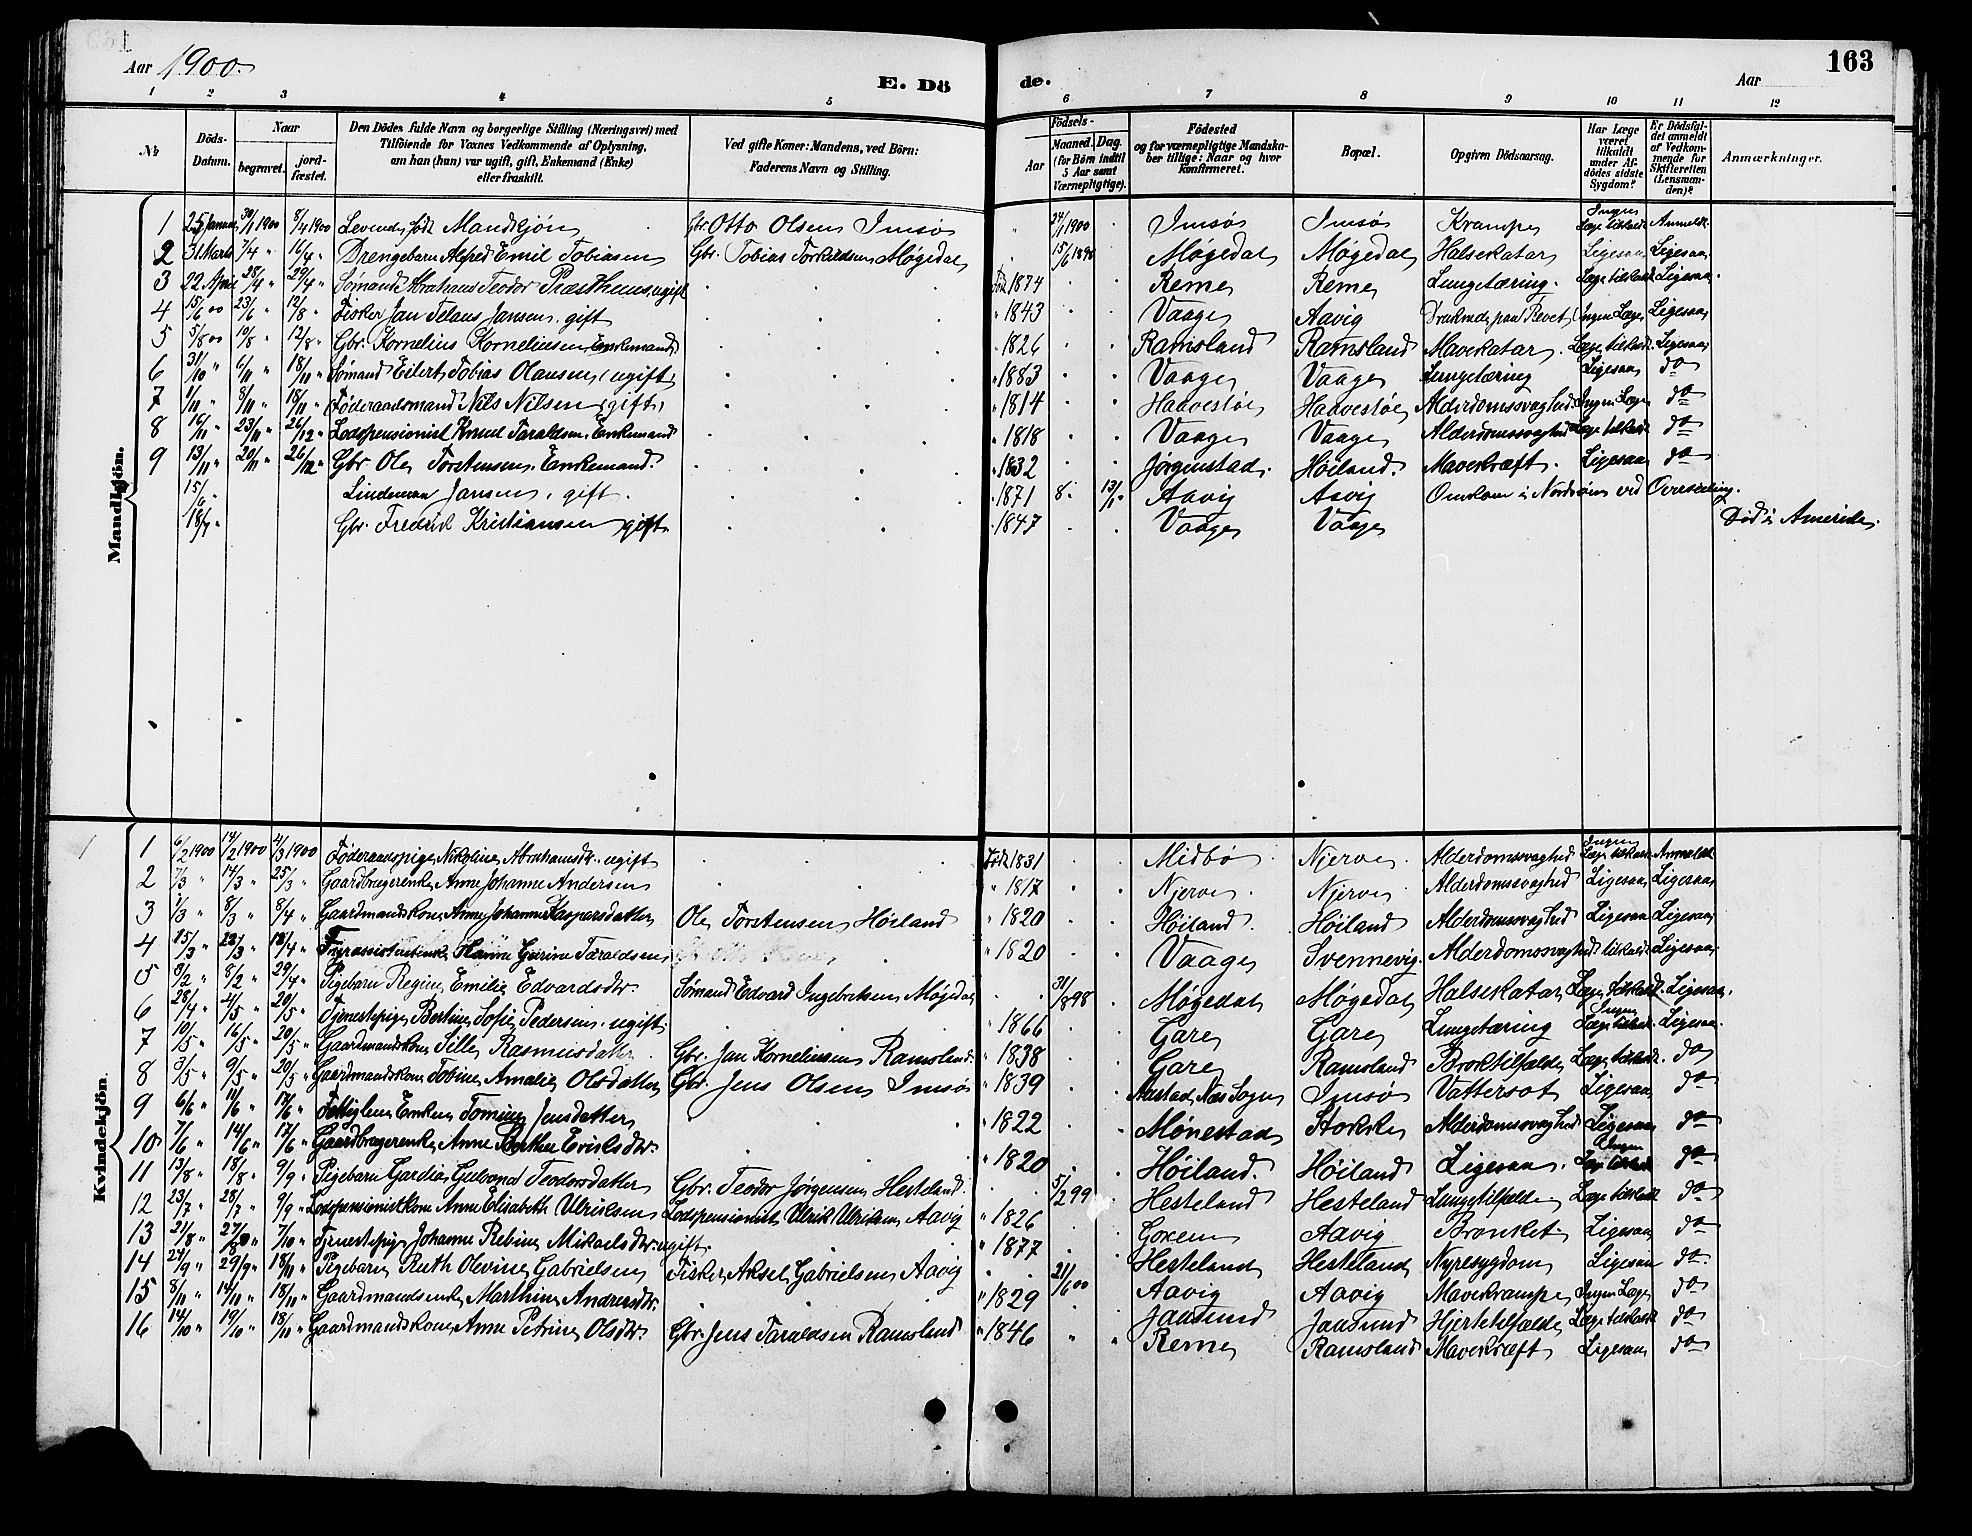 Aar 1900.
E. Dö de.
Aar
163
1 2 3 4 5 6 7 8 9 10 11 12
№
Döds-Datum.
Naar begravet. jord-fæstet.
Den Dödes fulde Navn og borgerlige Stilling (Næringsvei) med Tilföiende for Voxnes Vedkommende af Oplysning, om han (hun) var ugift, gift, Enkemand (Enke) eller fraskilt.
Ved gifte Koner: Mandens, ved Börn: Faderens Navn og Stilling.
Födsels- Aar Maaned. Dag. (for Börn indtil 5 Aar samt Værnepligtige).
Födested og for værnepligtige Mandskaber tillige: Naar og hvor konfirmeret.
Bopæl.
Opgiven Dödsaarsag.
Har Læge været tilkaldt under Afdödes sidste Sygdom?
Er Dödsfaldet anmeldt af Vedkommende for Skifteretten (Lensmanden)?
Anmærkninger.
Mandkjön.
1 25 Januar 30/1 1900 8/4 1900 Levende født Mandkjøn Gbr. Otto Olsen Imsø 24/1 1900 Imsø Imsø Krampe Ingen Læge tilkaldt Anmeldt
2 31 Marts 7/4 " 16/4 " Drengebarn Alfred Emil Tobiasen Gbr. Tobias Torkildsen Møgedal 15/6 1898 Møgedal Møgedal Halsekatar Ligesaa Ligesaa
3 22 April 28/4 " 29/4 " Sømand Abrahams Teodor ugift Født 1874 Reme Reme Lungetæring. Læge tilkaldt Ligesaa
4 15/6 00 23/6 " 12/8 " Fisker Jan Jansen, gift " 1843 Vaage Aavig Druknede paa Revet Ingen Læge Ligesaa
5 5/8 00 10/8 " 12/8 " Gbr. Kornelius Korneliusen Enkemand " 1826 Ramsland Ramsland Mavekatar. Læge tilkaldt Ligesaa
6 31/10 " 6/11 " 18/11 " Sømand Eilert Tobias Olausen, ugift " 1883 Vaage Vaage Lungetæring Ligesaa do
7 1/11 " 8/11 " 18/11 " Føderaadsmand Nils Nilsen, gift " 1814 Haavestøl Haavestøl Alderdomssvaghed Ingen Læge do
8 16/11 " 23/11 " 26/12 " Lodspensionist Knud Taraldsen, Enkemand " 1818 Vaage Vaage Alderdomssvaghed Læge tilkaldt do
9 13/11 " 20/11 " 26/12 " Gbr. Ole Torstensen, Enkemand. " 1832 Jørgenstad. Høiland. Mavekræft. Ligesaa do
15/ " Lindeman Jansen, gift. " 1871 8. Aavig Aavig Omkom i Nordsøen ved Overseiling.
18/7 " Gbr. Fredrik Kristiansen gift " 1847 Vaage Vaage Død i Amerika.
Kvindekjön.
1 6/2 1900 14/2 1900 4/3 1900 Føderaadspige Nikoline Abrahamsdtr. ugift Født 1831 Midbø Njerve. Alderdomssvaghed Ingen Læge tilkaldt Anmeldt
2 7/3 " 14/3 " 25/3 " Gaardbrugerenke Anne Johanne Andersen " 1817 Njerve. Njerve Alderdomssvaghed Ligesaa Ligesaa
3 1/3 " 8/3 " 8/4 " Gaardmandskone Anne Johanne Kaspersdatter Ole Torstensen Høiland " 1820 Høiland. Høiland Alderdomssvaghed Ligesaa Ligesaa
4 15/3 " 22/3 " 18/4 " Fyrassistentenke Hanne Gurine Taraldsen " 1820 Vaage Svennevig. Alderdomssvaghed tilkaldt Ligesaa
5 3/2 " 8/2 " 29/4 " Pigebarn Regine Emilie Edvardsdtr. Sømand Edvard Ingebretsen Møgedal 31/8 98 Møgedal Møgedal Halsekatar Læge tilkaldt. Ligesaa.
6 28/4 " 4/5 " 20/5 " Tjenestepige Bertine Sofie Pedersen, ugift. " 1866 Gare Gare Lungetæring Ingen Læge tilkaldt Ligesaa.
7 10/5 " 16/5 " 20/5 " Gaardmandskone Tille Rasmusdatter. Gbr. Jan Korneliusen Ramsland. " 1838 Gare Ramsland Broktilfælde Læge tilkaldt. do
8 3/5 " 9/5 " 20/5 " Gaardmandskone Tobine Amalie Olsdatter Gbr. Jens Olsen Imsø " 1839 Næs Sogn Imsø Vattersot Ligesaa do
9 6/6 " 11/6 " 17/6 " Fattiglem Enken Tomine Jensdatter " 1822 Mønestad Stokke Alderdomssvaghed Ligesaa do
10 7/6 " 14/6 " 17/6 " Gaardbrugerenke Anne Berthe Eriksdtr. " 1820 Høiland. Høiland Ligesaa. Ingen Læge tilkaldt do
11 13/8 " 18/8 " 9/9 " Pigebarn Gardia Gudvora Teodorsdatter Gbr. Teodor Jørgensen Hesteland. 5/2 99 Hesteland Hesteland Lungetilfælde Læge tilkaldt do
12 23/7 " 28/7 " 9/9 " Lodspensionistkone Anne Elisabeth Ulriksen Lodspensionist Ulrik Ulriksen Aavig " 1826 Goxem Aavig Bronket. Ligesaa do
13 21/8 " 27/8 " 7/10 " Tjenestepige Johanne Rebine Mikaelsdtr. ugift. " 1877 Hesteland Hesteland Nyresygdom Ligesaa do.
14 24/9 " 29/9 " 18/11 " Pigebarn Ruth Olevine Gabrielsen Fisker Aksel Gabrielsen Aavig 21/6 00 Aavig Aavig Mavekrampe Ingen Læge do
15 8/11 " 14/11 " 18/11 " Gaardmandsenke Marthine Andreasdtr. " 1829 Jaasund Jaasund Hjertetilfælde Læge tilkaldt do
16 14/10 " 19/10 " 18/11 " Gaardmandskone Anne Petrine Olsdtr. Gbr. Jens Taraldsen Ramsland " 1846 Reme Ramsland Mavekræft Ligesaa do